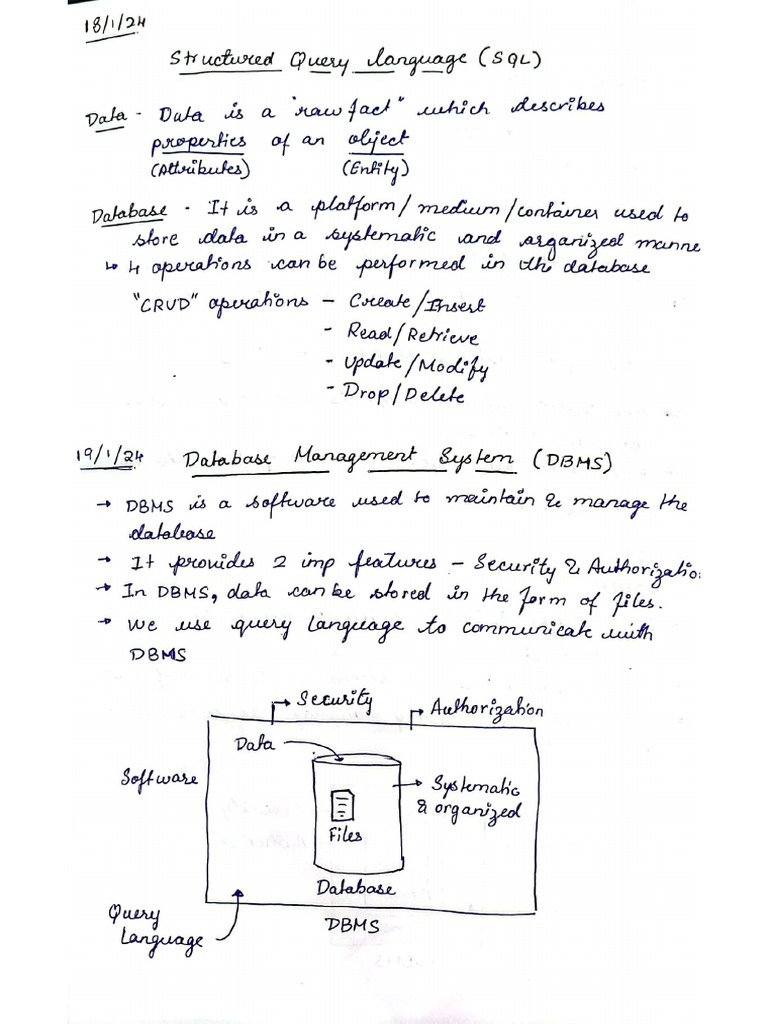 18/1/24
Structured Query Language (SQL)
Data - Data is a "raw fact" which describes
properties of an object
(Attributes) (Entity)
Database - It is a platform/medium/container used to
store data in a systematic and organized manne
↳ 4 operations can be performed in the database
"CRUD" operations - Create/Insert
- Read/Retrieve
- Update/Modify
- Drop/Delete
19/1/24 Database Management System (DBMS)
→ DBMS is a software used to maintain & manage the
database
→ It provides 2 imp features - Security & Authorizatio
→ In DBMS, data can be stored in the form of files.
→ We use query language to communicate with
DBMS
→ Security
→ Authorization
Data
Software
→ Systematic
& organized
Files
Database
Query
Language
DBMS